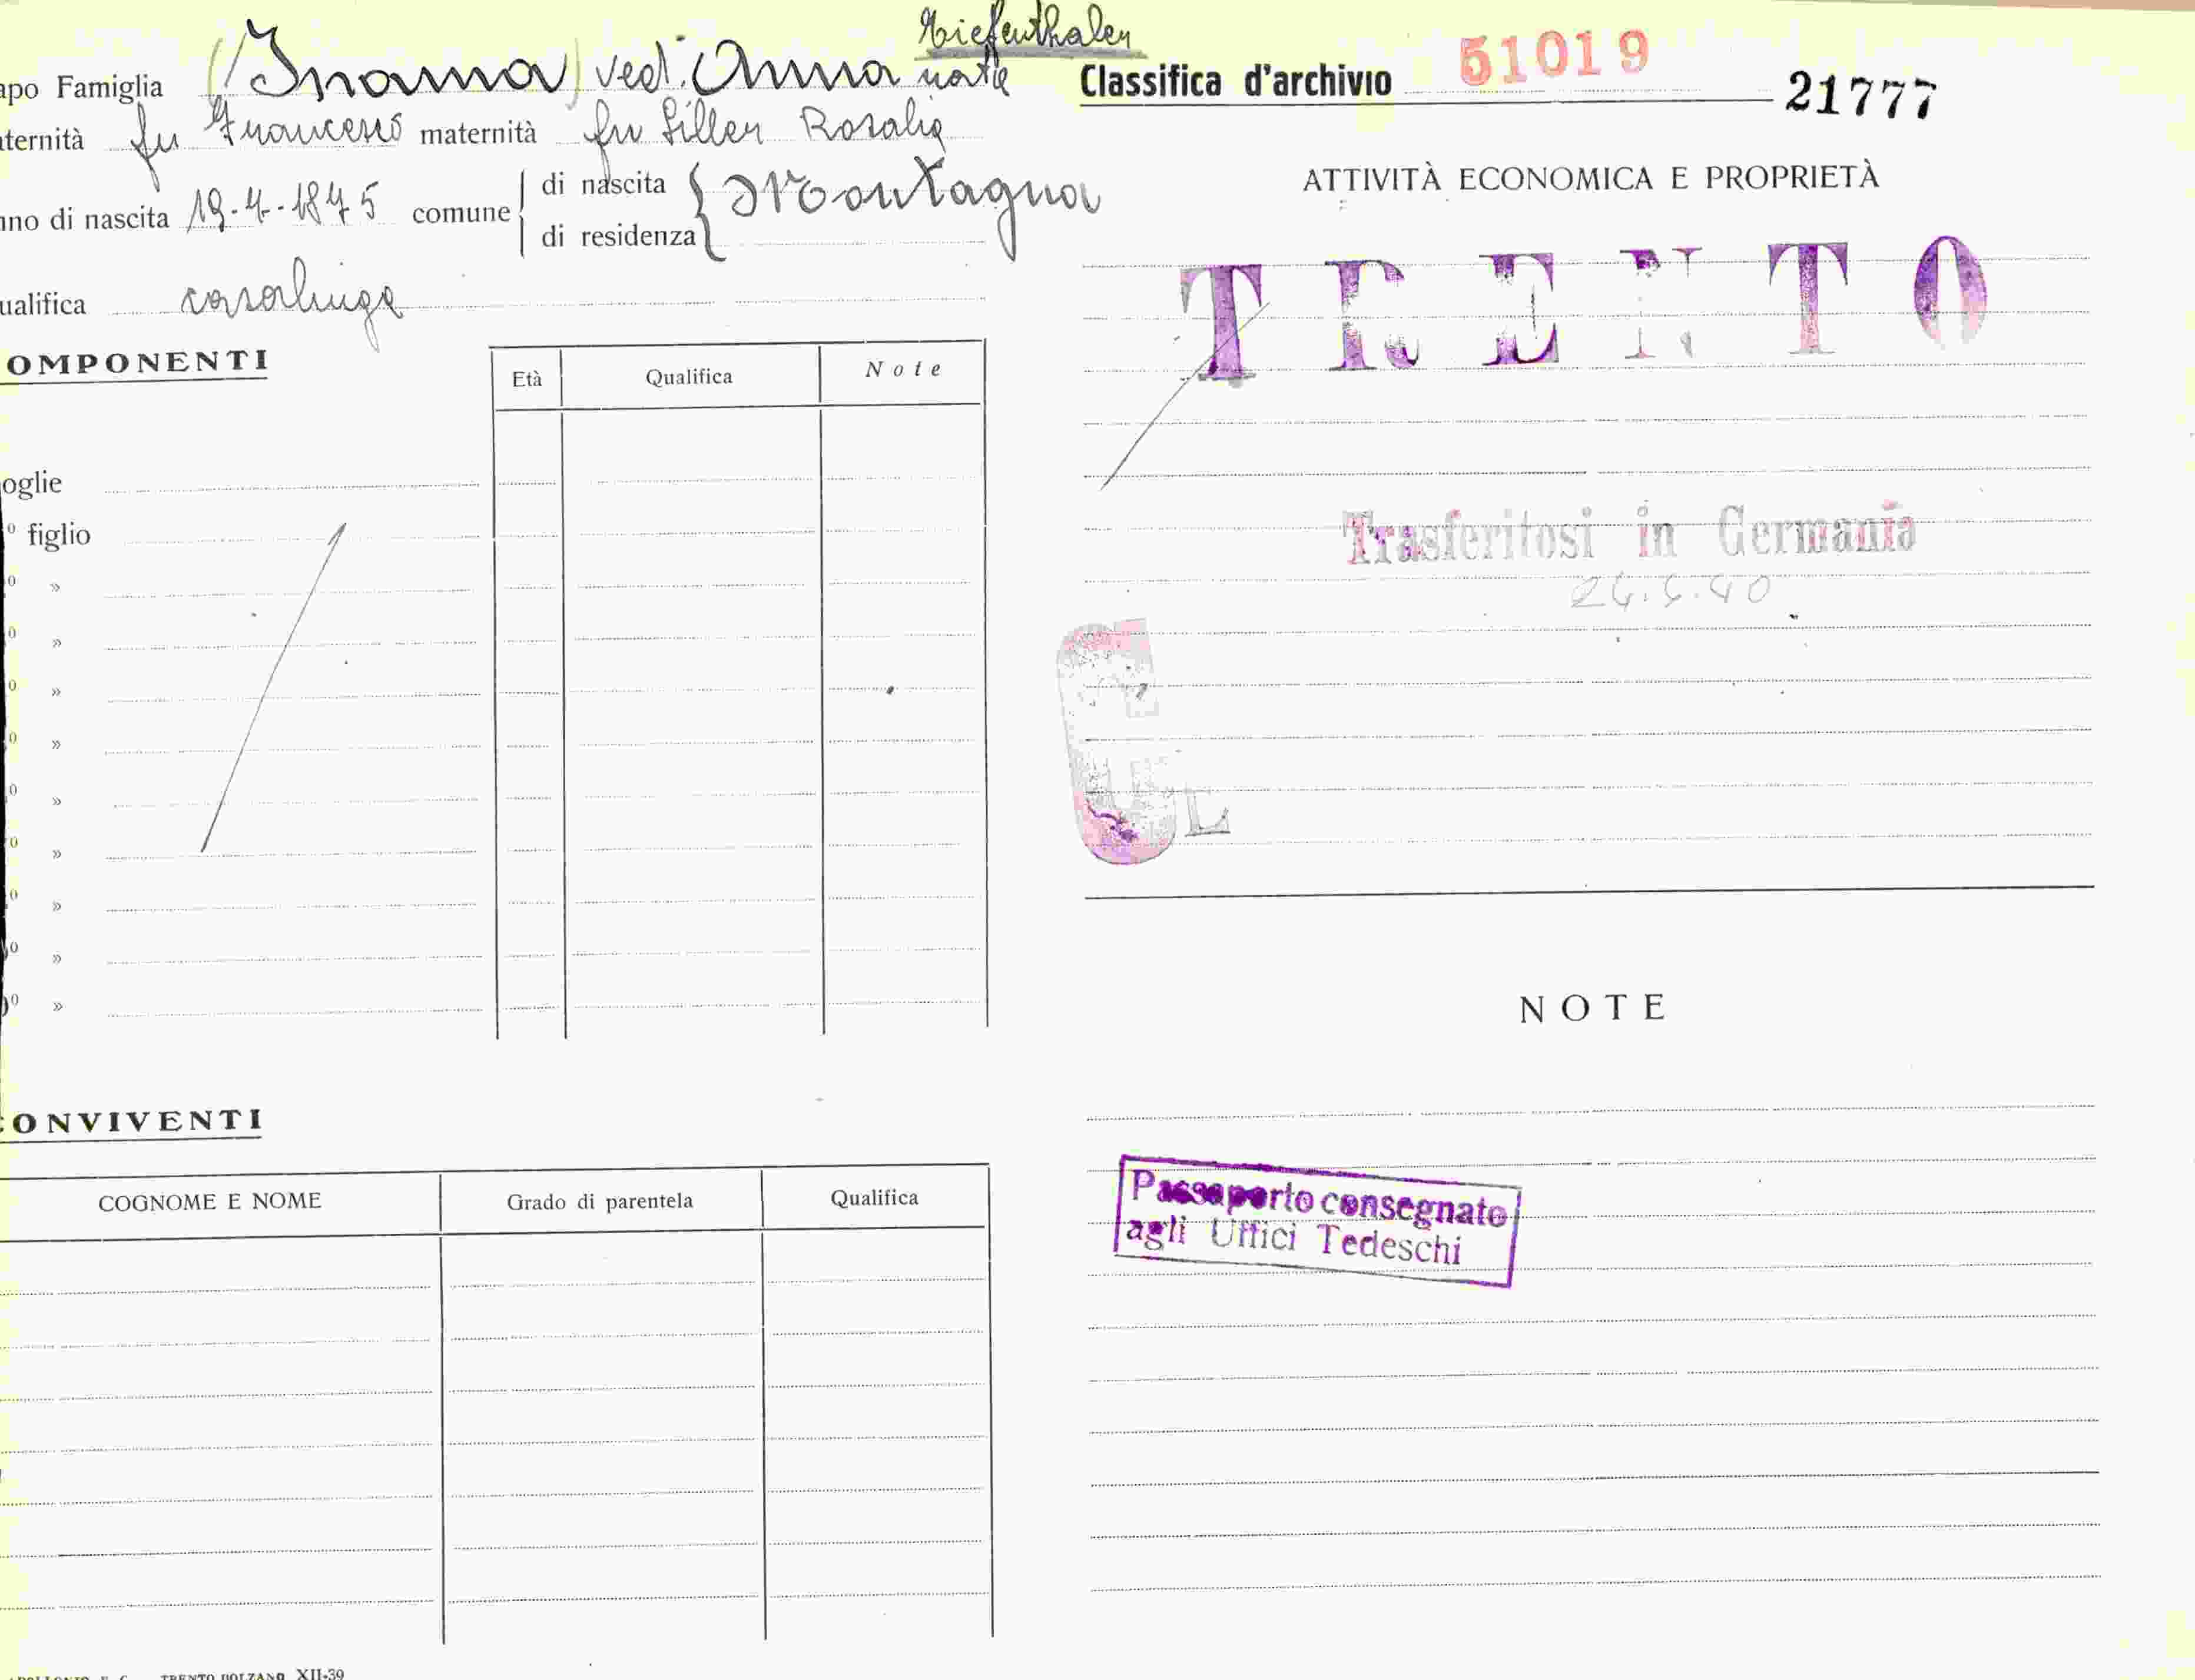 Tiefenthaler
apo Famiglia (Inama) ved. Anna nata
aternità fu Francesco maternità fu Siller Rosalia
nno di nascita 19-4-1875 comune di nascita Montagna
di residenza
ualifica casalinga
OMPONENTI
Età Qualifica Note
oglie
º figlio
º »
º »
º »
º »
º »
º »
º »
º »
0º »
CONVIVENTI
COGNOME E NOME Grado di parentela Qualifica
TRENTO-BOLZANO XII-39
Classifica d'archivio 51019
21777
ATTIVITÀ ECONOMICA E PROPRIETÀ
TRENTO
Trasferitosi in Germania
L
NOTE
Passaporto consegnato
agli Uffici Tedeschi